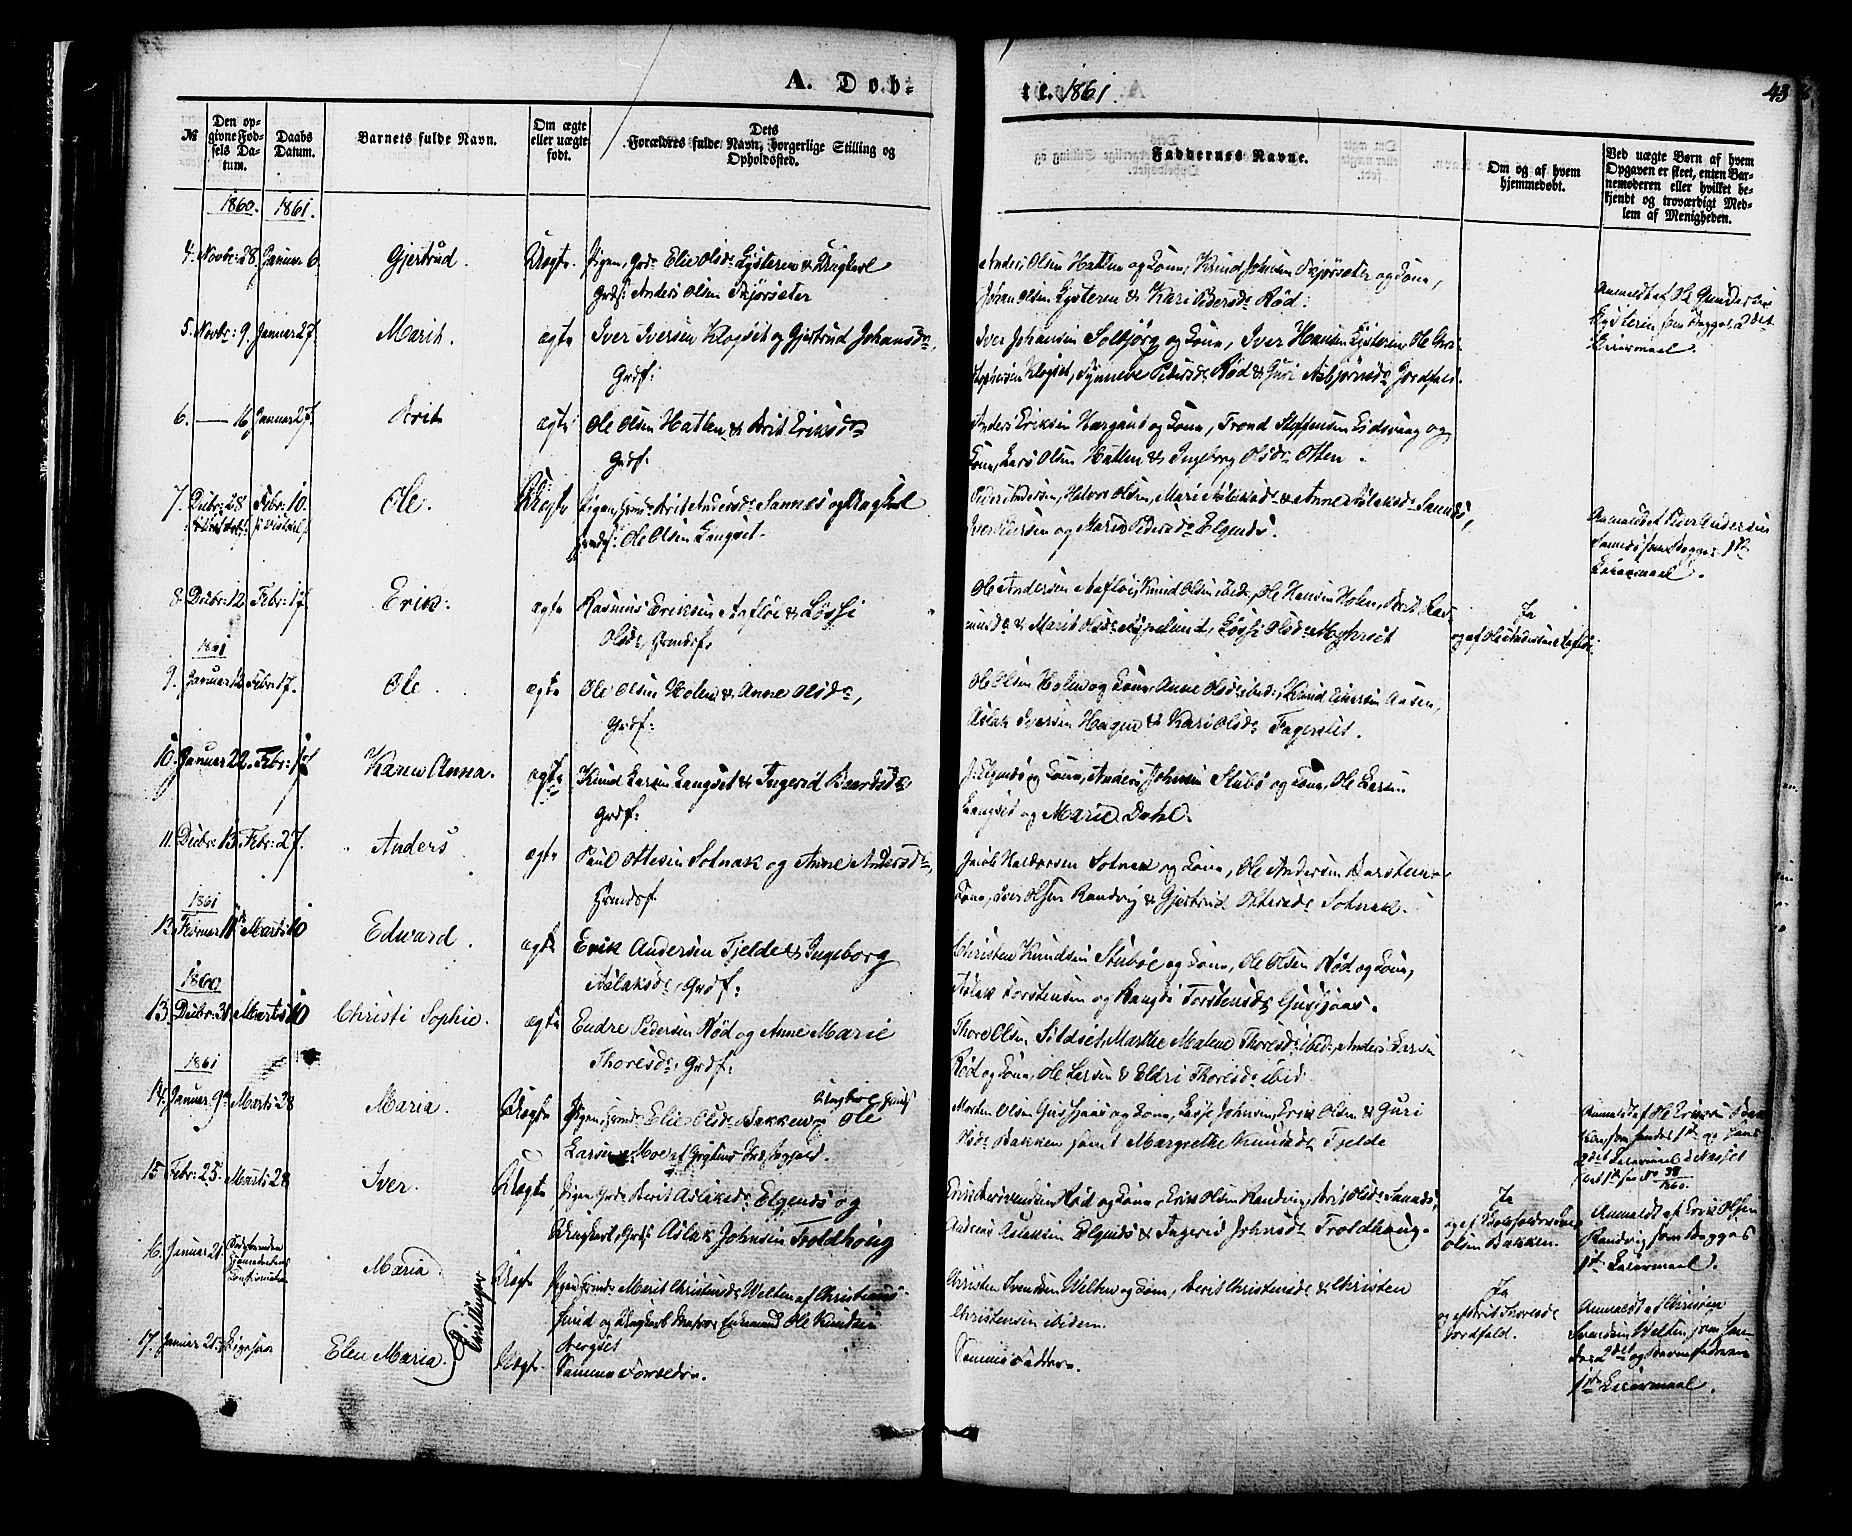 A. Dob-
te. 1861.
43
№
Den opgivne Fødsels Datum.
Daabs Datum.
Barnets fulde Navn.
Om ægte eller uægte født.
Dets Forældres fulde Navn, borgerlige Stilling og Opholdssted.
Faddernes Navne.
Om og af hvem hjemmedøbt.
Ved uægte Børn af hvem Opgaven er skeet, enten Barnemoderen eller hvilket bekjendt og troværdigt Medlem af Menigheden.
1860. 1861.
4. Novbr: 28. Januar 6. Gjertrud. Uægte Pigen, Grds. Elie Olsdr Lysteren & Ungkarl
Grds: Anders Olsen Skjørsæter
Anders Olsen Hatlen og Kona, Knud Johnsen Skjørsæter og Kona,
Johan Olsen Lysteren & Kari Pedersdr Rød.
Anmeldt af Ole Gundersen
Lysteren som Begges 2det
Leiermaal.
5. Novbr: 9. Januar 27. Marit. ægte Iver Iversen Klogset og Gjertrud Johansdr,
Grdf:
Iver Johansen Solbjørg og Kona, Iver Hansen Lysteren, Ole Chri-
stophersen Klogset, Synneve Petersdr Rød & Guri Asbjørnsdr Jordfald.
6. — 16, Januar 27. Brit ægte Ole Olsen Hatlen & Brit Eriksdr
Grdf:
Anders Eriksen Hargaut og Kona, Trond Steffensen Eidsvaag og
Kona, Lars Olsen Hatlen & Ingeborg Olsdr Otten.
7. Decbr: 28 Febr: 10. Ole. Uægte Pigen, Brit Andersdr Sannes og Ungkarl
Ole Olsen Langset.
Peder Andersen, Halvor Olsen, Mari Aslaksdr & Anne Aslaksdr Sannes,
Iver Pedersen og Marit Pedersdr Elgenes.
Anmeldt af Peder Andersen
Sannes som Begges 1ste
Leiermaal.
8. Decbr: 12 Febr: 17. Erik. ægte Rasmus Eriksen Aafløi & Løssi
Olsdr,
Ole Andersen Aafløi, Knud Olsen ibid, Ole Hansen Holen, Brit Ras-
musdr & Marit Olsdr Løssi Olsdr
Ja
og af Ole Andersen Aafløi.
1861
9. Januar 12 Febr: 17. Ole ægte Ole Olsen Holen & Anne Olsdr,
Grdf:
Ole Olsen Holen og Kona, Anne Olsdr ibid, Knud Einersen Aasen,
Aslak Iversen Hagen & Kari Olsdr Fagerslet.
10. Januar 22. Febr: 17 Karen Anna. ægte Knud Larsen Langset & Ingerid Baardsdr
Grdf:
og Kona, Anders Johnsen Stubø og Kona, Ole Larsen
Langset og Marie Dahl.
11. Decbr: 13. Febr: 27. Anders ægte Paul Ottesen Solnak og Anne Andersdr,
Jacob Haldorsen Solnak og Kona, Ole Andersen Torsten
Kona, Iver Olsen Randvig & Gjertrud Ottesdr Solnak.
1861
12. Februar 11te Marts 10 Edward. ægte Erik Andersen Fjelde & Ingeborg
Aslaksdr, Grdf:
Christen Knudsen Stubøe og Kona, Ole Olsen Rød og Kona,
Aslak Torstensen og Rangdi Torstensdr Gusjaas.
1860
13. Decbr: 31 Marts 10 Christi Sophie. ægte Endre Pedersen Rød og Anne Marie
Thoresdr, Grdf:
Thore Olsen Sildset, Marthe Malene Thoresdr ibid, Anders Larsen
Rød og Kona, Ole Larsen & Eldri Thoresdr ibid.
1861
14. Januar 9de Marts 28 Maria. Uægte Pigen, Elie Olsdr Bakken og Ole
Larsen Moe
Morten Olsen Gusjaas og Kona, Lasse Johnsen, Erik Olsen & Guri
Olsdr Bakken samt Margrethe Knudsdr Fjelde
Anmeldt af Ole Eriksen
15. Febr: 25. Marts 28 Iver. Uægte Pigen Grds Berit Aslaksdr Elgenes og
Ungkarl, Grds: Aslak Johnsen Troldhoug
Rød og Kona, Erik Olsen Randvig, Brit Olsdr Sannes,
Andreas Aslaksen Elgenes & Ingerid Johnsdr Troldhoug.
Ja
Olsen Bakken.
Anmeldt af Erik Olsen
Randvig som Begges
1ste Leiermaal.
16. Januar 21. Maria. Uægte Pigen Marit Christensdr Welten af Christians-
sund og Ungkarl Ole Knudsen
Tvillinger
Christen Svendsen Welten og Kona, Berit Christensdr & Christen
Christensen ibidem.
Ja
og af Brit Thoresdr
Jordfald.
Anmeldt af Christen
Svendsen Welten som
2det og Barnefaderens
1ste Leiermaal.
17. Januar 21. Ligesaa Elen Maria. Uægte. Samme Forældre.
Samme Faddere.